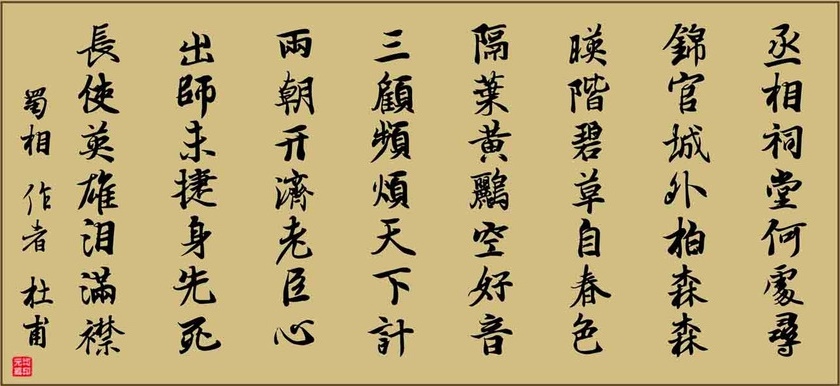 丞相祠堂何處尋
錦官城外柏森森
暎階碧草自春色
隔葉黃鸝空好音
三顧頻煩天下計
兩朝開濟老臣心
出師未捷身先死
長使英雄泪滿襟
蜀相 作者 杜甫